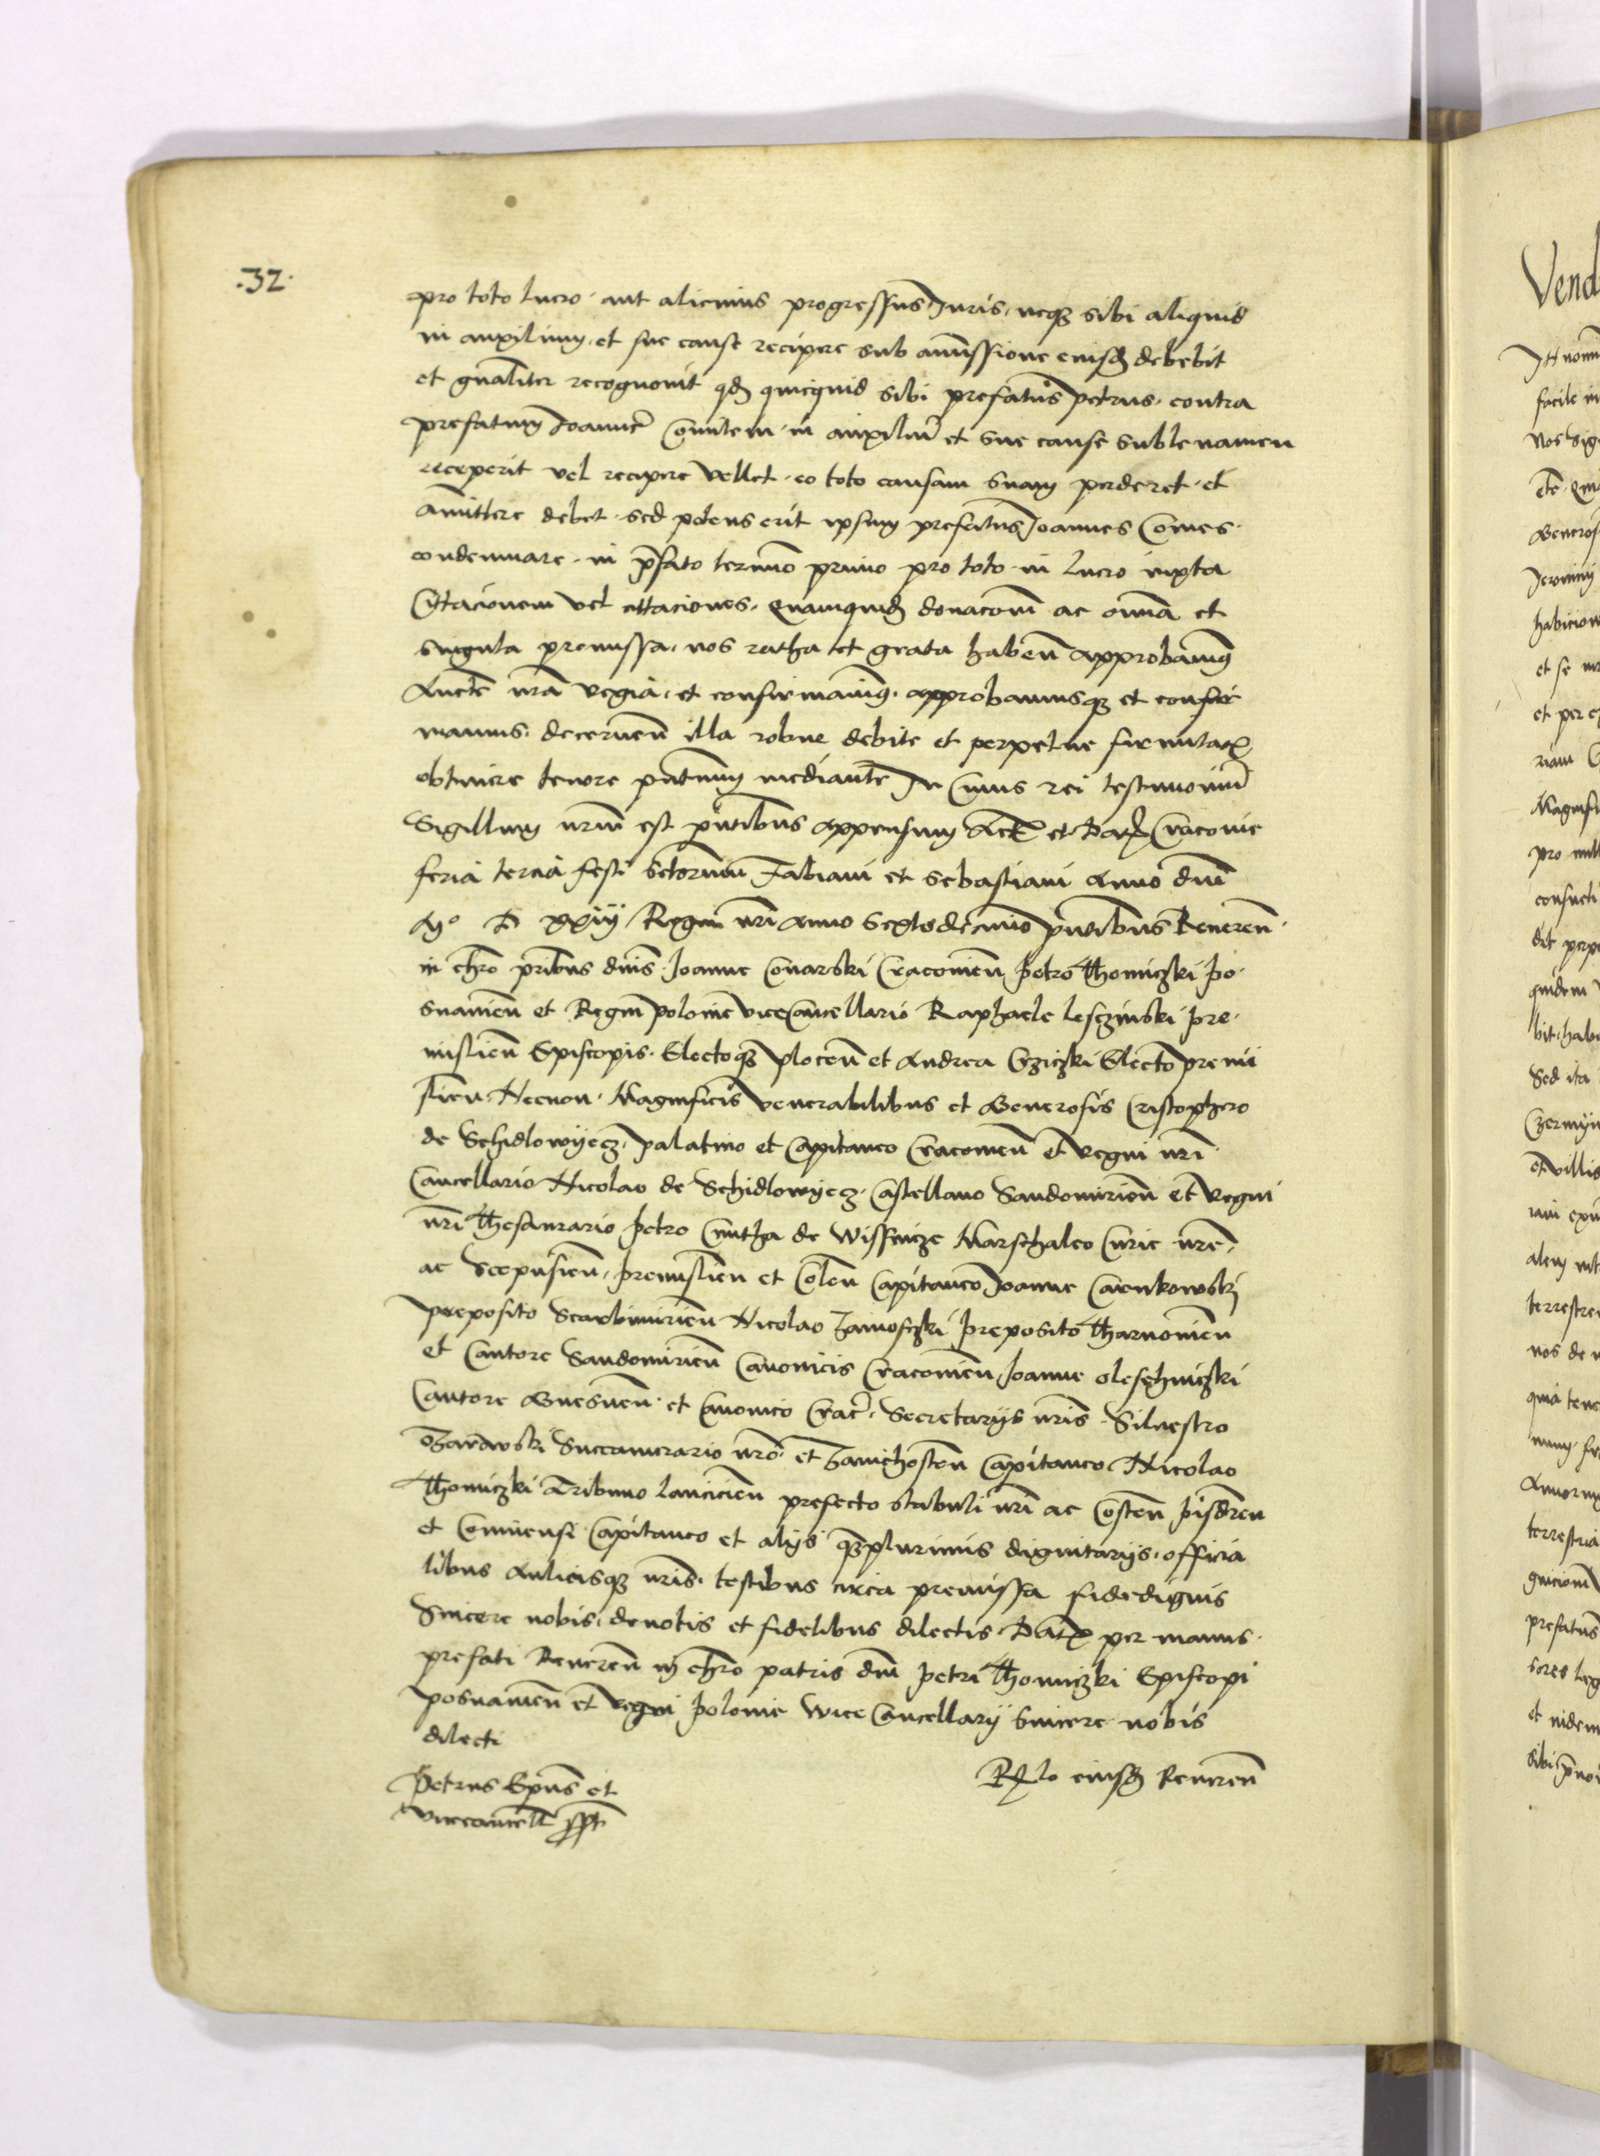 .32.
pro toto lucro · aut alicuius progressus Juris, neqz sibi aliquid
in auxilium, et sue cause recipere sub amissione eiusd debebit
et gnaliter recognovit qd quicquid sibi prefatus petrus · contra
prefatum Joanne Comitem · in auxiliu et sue cause sublevamen
receperit vel recipere vellet · eo toto causam suam perderet · et
amittere debet · sed potens erit ipsum prefatus Joannes Comes ·
condemnare · in pfato termino primo pro toto · in lucro iuxta
Citacionem vel citaciones · quamquid donacom ac omnia et
singula premissa, nos ratha et grata haben approbavimus
Aucte nra regia, et confirmavimus · approbamusqz et confir
manus, decernen illa robur debite et perpetue firmitatis
obtinere tenore pntium mediante In Cuius rei testimoniu
Sigillum nrum est pntibus appensum Act et Dat Cracovie
feria tercia festi sctorum Fabiani et Sebastiani Anno dni
Mo D xxiiij Regni nri anno Sextodecimo pntibus Reveren ·
in chro pribus dnis · Joanne Conarski Cracovien Petro Thomiczki Po·
snanien et Regni polonie vicecancellario Raphaele Lesczinski pre·
mislien Episcopis · Electoqz plocen et Andrea Crziczki Electo premi
slien Necnon · Magnificis venerabilibus et Generosis Cristophero
de Schidlowyecz · palatino et Capitaneo Cracovien et regni nri ·
Cancellario Nicolao de Schidlowyecz · Castellano Sandomirien et regni
nri Thesaurario Petro Cmitha de Wissnicze Marschalco Curie nre ·
ac Scepusien, premislien et Colen Capitaneo Joanne Carnkowski
preposito Scarbimirien Nicolao Zamoschski preposito Tharnovien
et Cantore Sandomirien Canonicis Cracovien Joanne oleschniczki
Cantore Gnesnen · et Canonico Crac · Secretariis nris · Silvestro
Ozarowski Succamerario nro · et Zawichosten Capitaneo Nicolao
Thomiczki Tribuno Lancicien prefecto stabuli nri ac Costen pisdren
et Coninensi Capitaneo et aliis qzplurimis dignitariis · officia
libus Aulicisqz nris · testibus circa premissa fidedignis
Sincere nobis, devotis et fidelibus dilectis · Dat per manus ·
prefati Reveren in chro patris dni Petri Thomiczki Episcopi
posnanien et regni polonie Vice Cancellarij sincere nobis
dilecti
Rlo eiusd Reveren
Petrus Epus et
vicecancell sspt
Vend
facile in
nos sig
Generos
habicion
et se
et per
riam
Magnifi
pro
consueti
dit perp
quidem
bit, habe
Sed ita
et villis
terrestre
nos de
terrestria
prefatus
et eidem